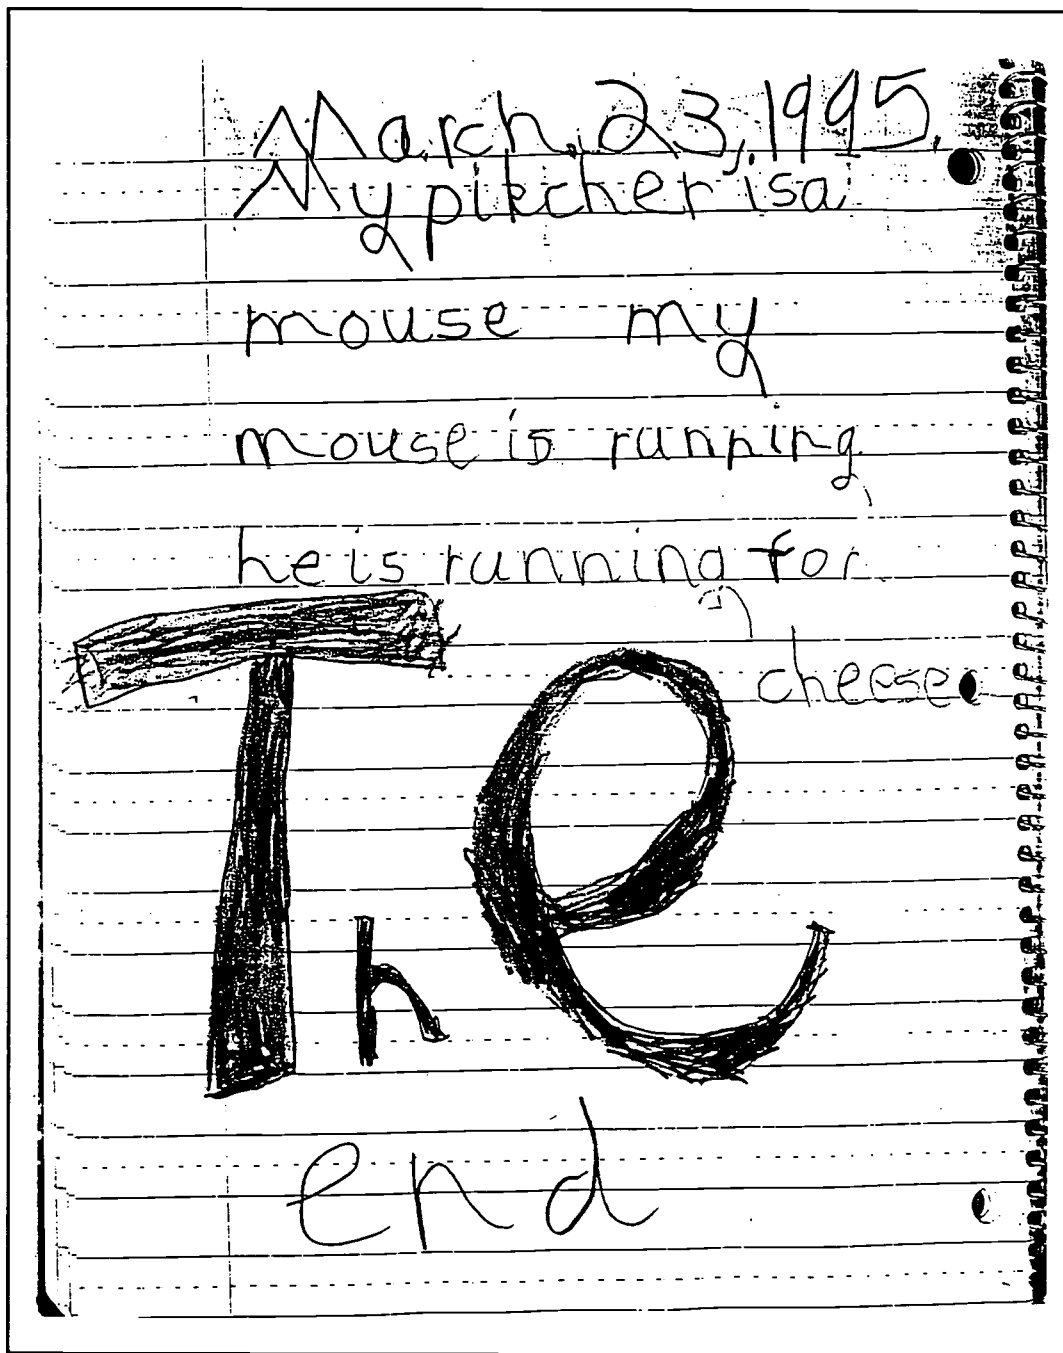 March, 23, 1995.
My pikcher is a
mouse my
mouse is running
he is running for
cheese.
The
end